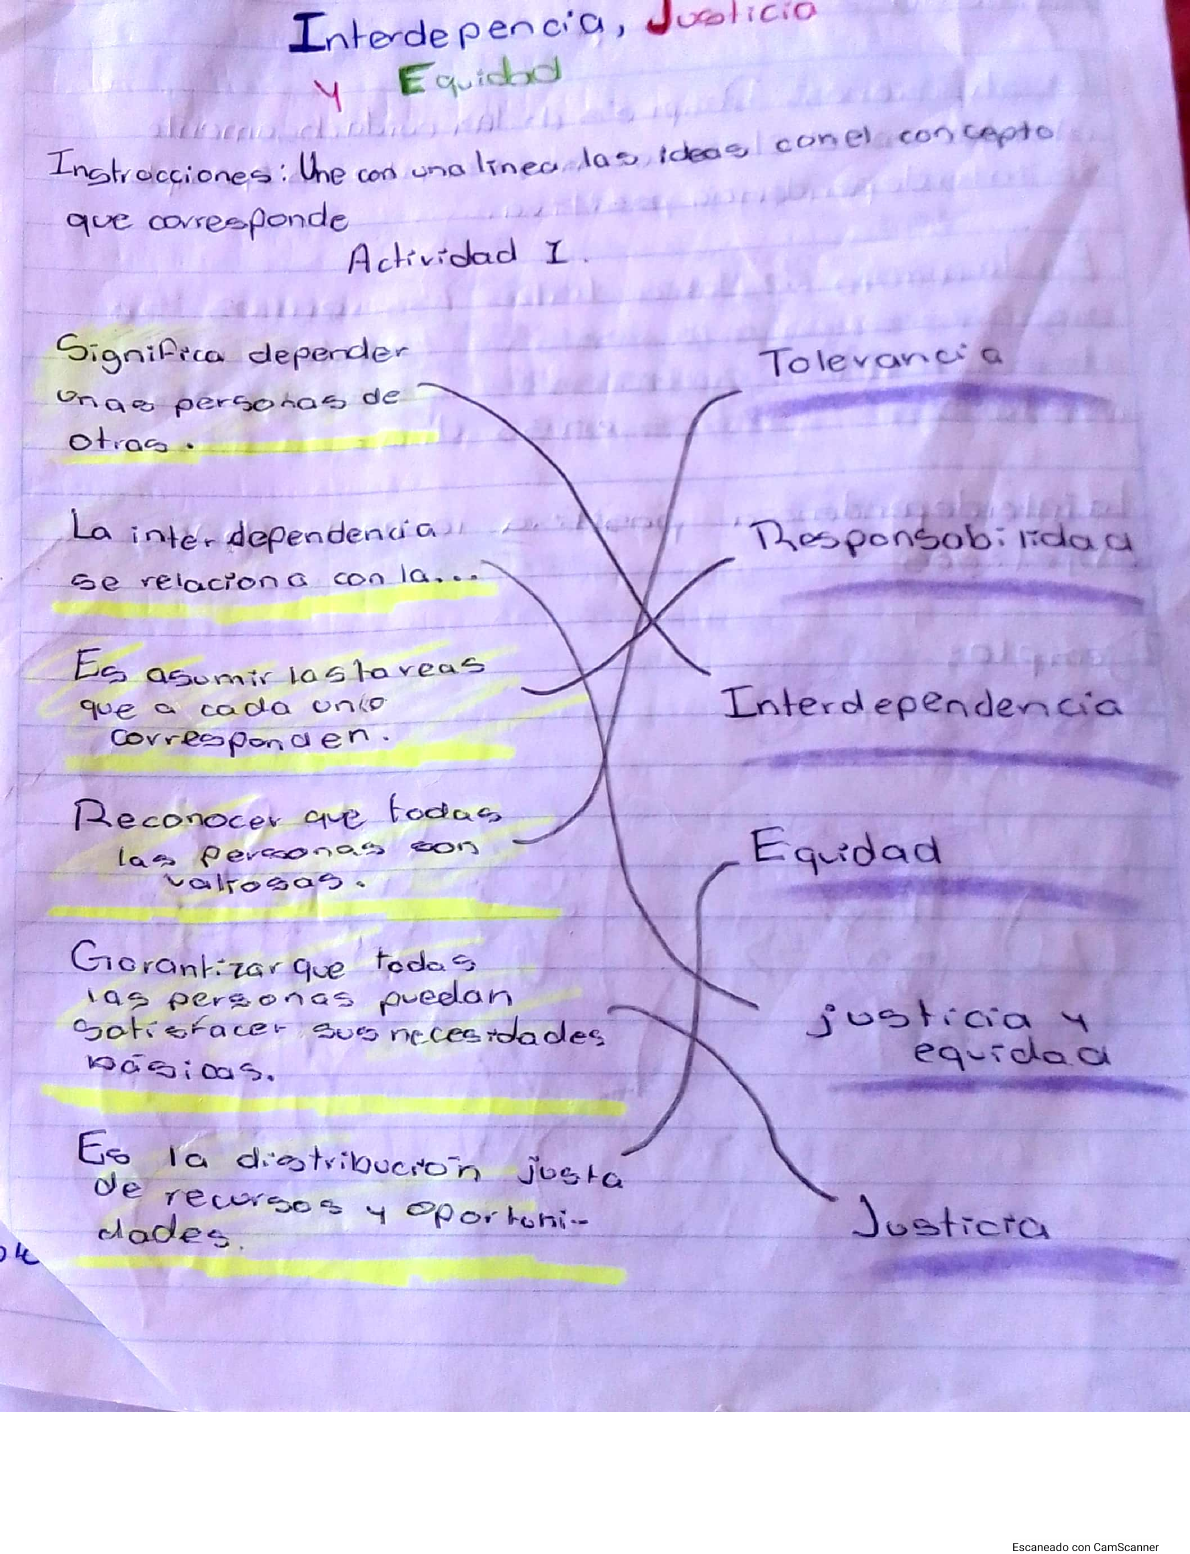 Interdepencia, Justicia
y Equidad
Instrucciones: Une con una linea las ideas con el concepto
que corresponde
Actividad I.
Significa depender
unas personas de
otras.
La interdependencia
se relaciona con la...
Es asumir las tareas
que a cada uno
corresponden.
Reconocer que todas
las personas son
valiosas.
Garantizar que todas
las personas puedan
satisfacer sus necesidades
básicas.
Es la distribución justa
de recursos y oportuni-
dades.
Tolerancia
Responsabilidad
Interdependencia
Equidad
justicia y
equidad
Justicia
Escaneado con CamScanner